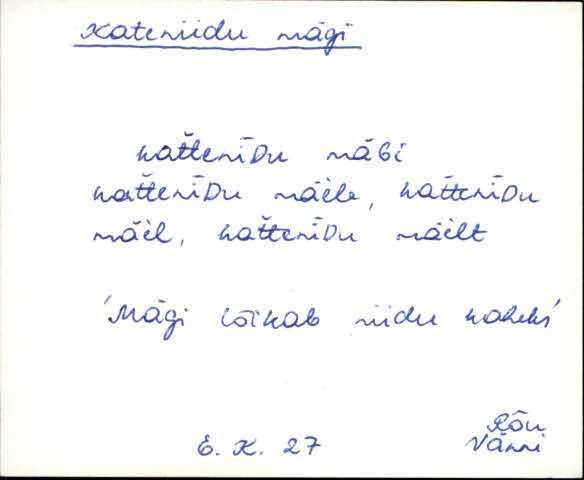 Kateniidu mägi
kat̆tenīDu mäɢi
kat̆tenīDu mäèle, kat̆tenīDu
mäèl, kat̆tenīDu mäèlt
'Mägi lõikab niidu kaheks'
Rõu
E. K. 27 Vänni